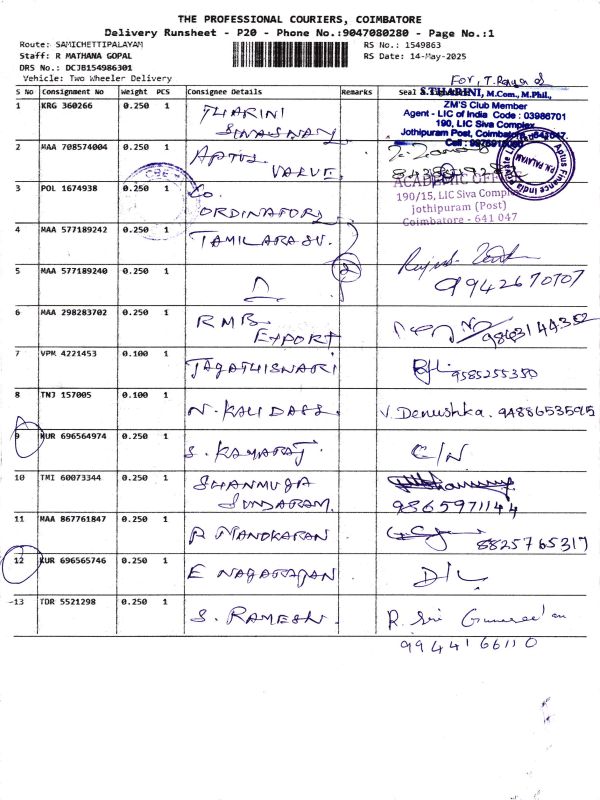 THE PROFESSIONAL COURIERS, COIMBATORE
Delivery Runsheet - P20 - Phone No.:9047080280 - Page No.:1
Route: SAMICHETTIPALAYAM
RS No.: 1549863
Staff: R MATHANA GOPAL
RS Date: 14-May-2025
DRS No.: DCJB154986301
Vehicle: Two Wheeler Delivery
For, T.
S No Consignment No Weight PCS Consignee Details Remarks Seal
S.THARINI, M.Com., M.Phil.,
ZM'S Club Member
Agent - LIC of India Code : 03986701
190, LIC Siva Complex
Jothipuram Post, Coimbatore - 641047.
Cell :
1 KRG 360266 0.250 1 THARINI
2 MAA 708574004 0.250 1 APTUS VALUE
Aptus Finance India Private Limited
P.N. PALAYAM
3 POL 1674938 0.250 1 Co. ORDINATOR
CBE
ACADEMIC OFFICE
190/15, LIC Siva Complex
Jothipuram (Post)
Coimbatore - 641 047
4 MAA 577189242 0.250 1 TAMILARASU.
2
5 MAA 577189240 0.250 1
9942670707
6 MAA 298283702 0.250 1 RMB EXPORT
9863144352
7 VPM 4221453 0.100 1 JAGATHISWARI
9585255350
8 TNJ 157005 0.100 1 N. KALIDASS. V. Denushka. 9488653595
9 KUR 696564974 0.250 1 S. KAMARAJ C/N
10 TMI 60073344 0.250 1 SHANMUGA SUNDARAM.
9865971144
11 MAA 867761847 0.250 1 R MANOKARAN
8825765317
12 KUR 696565746 0.250 1 E NAGARAJAN D/L
-13 TDR 5521298 0.250 1 S. RAMESH. R. Sri
9944166110